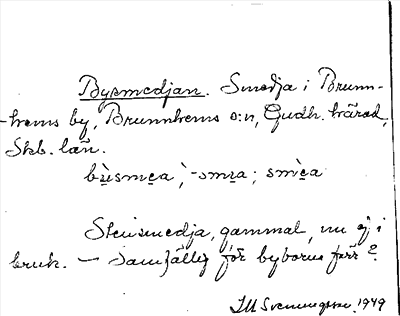 Bysmedjan. Smedja i Brunn-
-hems by, Brunnhems s:n, Gudh. härad,
Skb. län.
bỳsmea, -smɪa; smèa
Stensmedja, gammal, nu ej i
bruk. — Samfällig för byborna förr?
1949